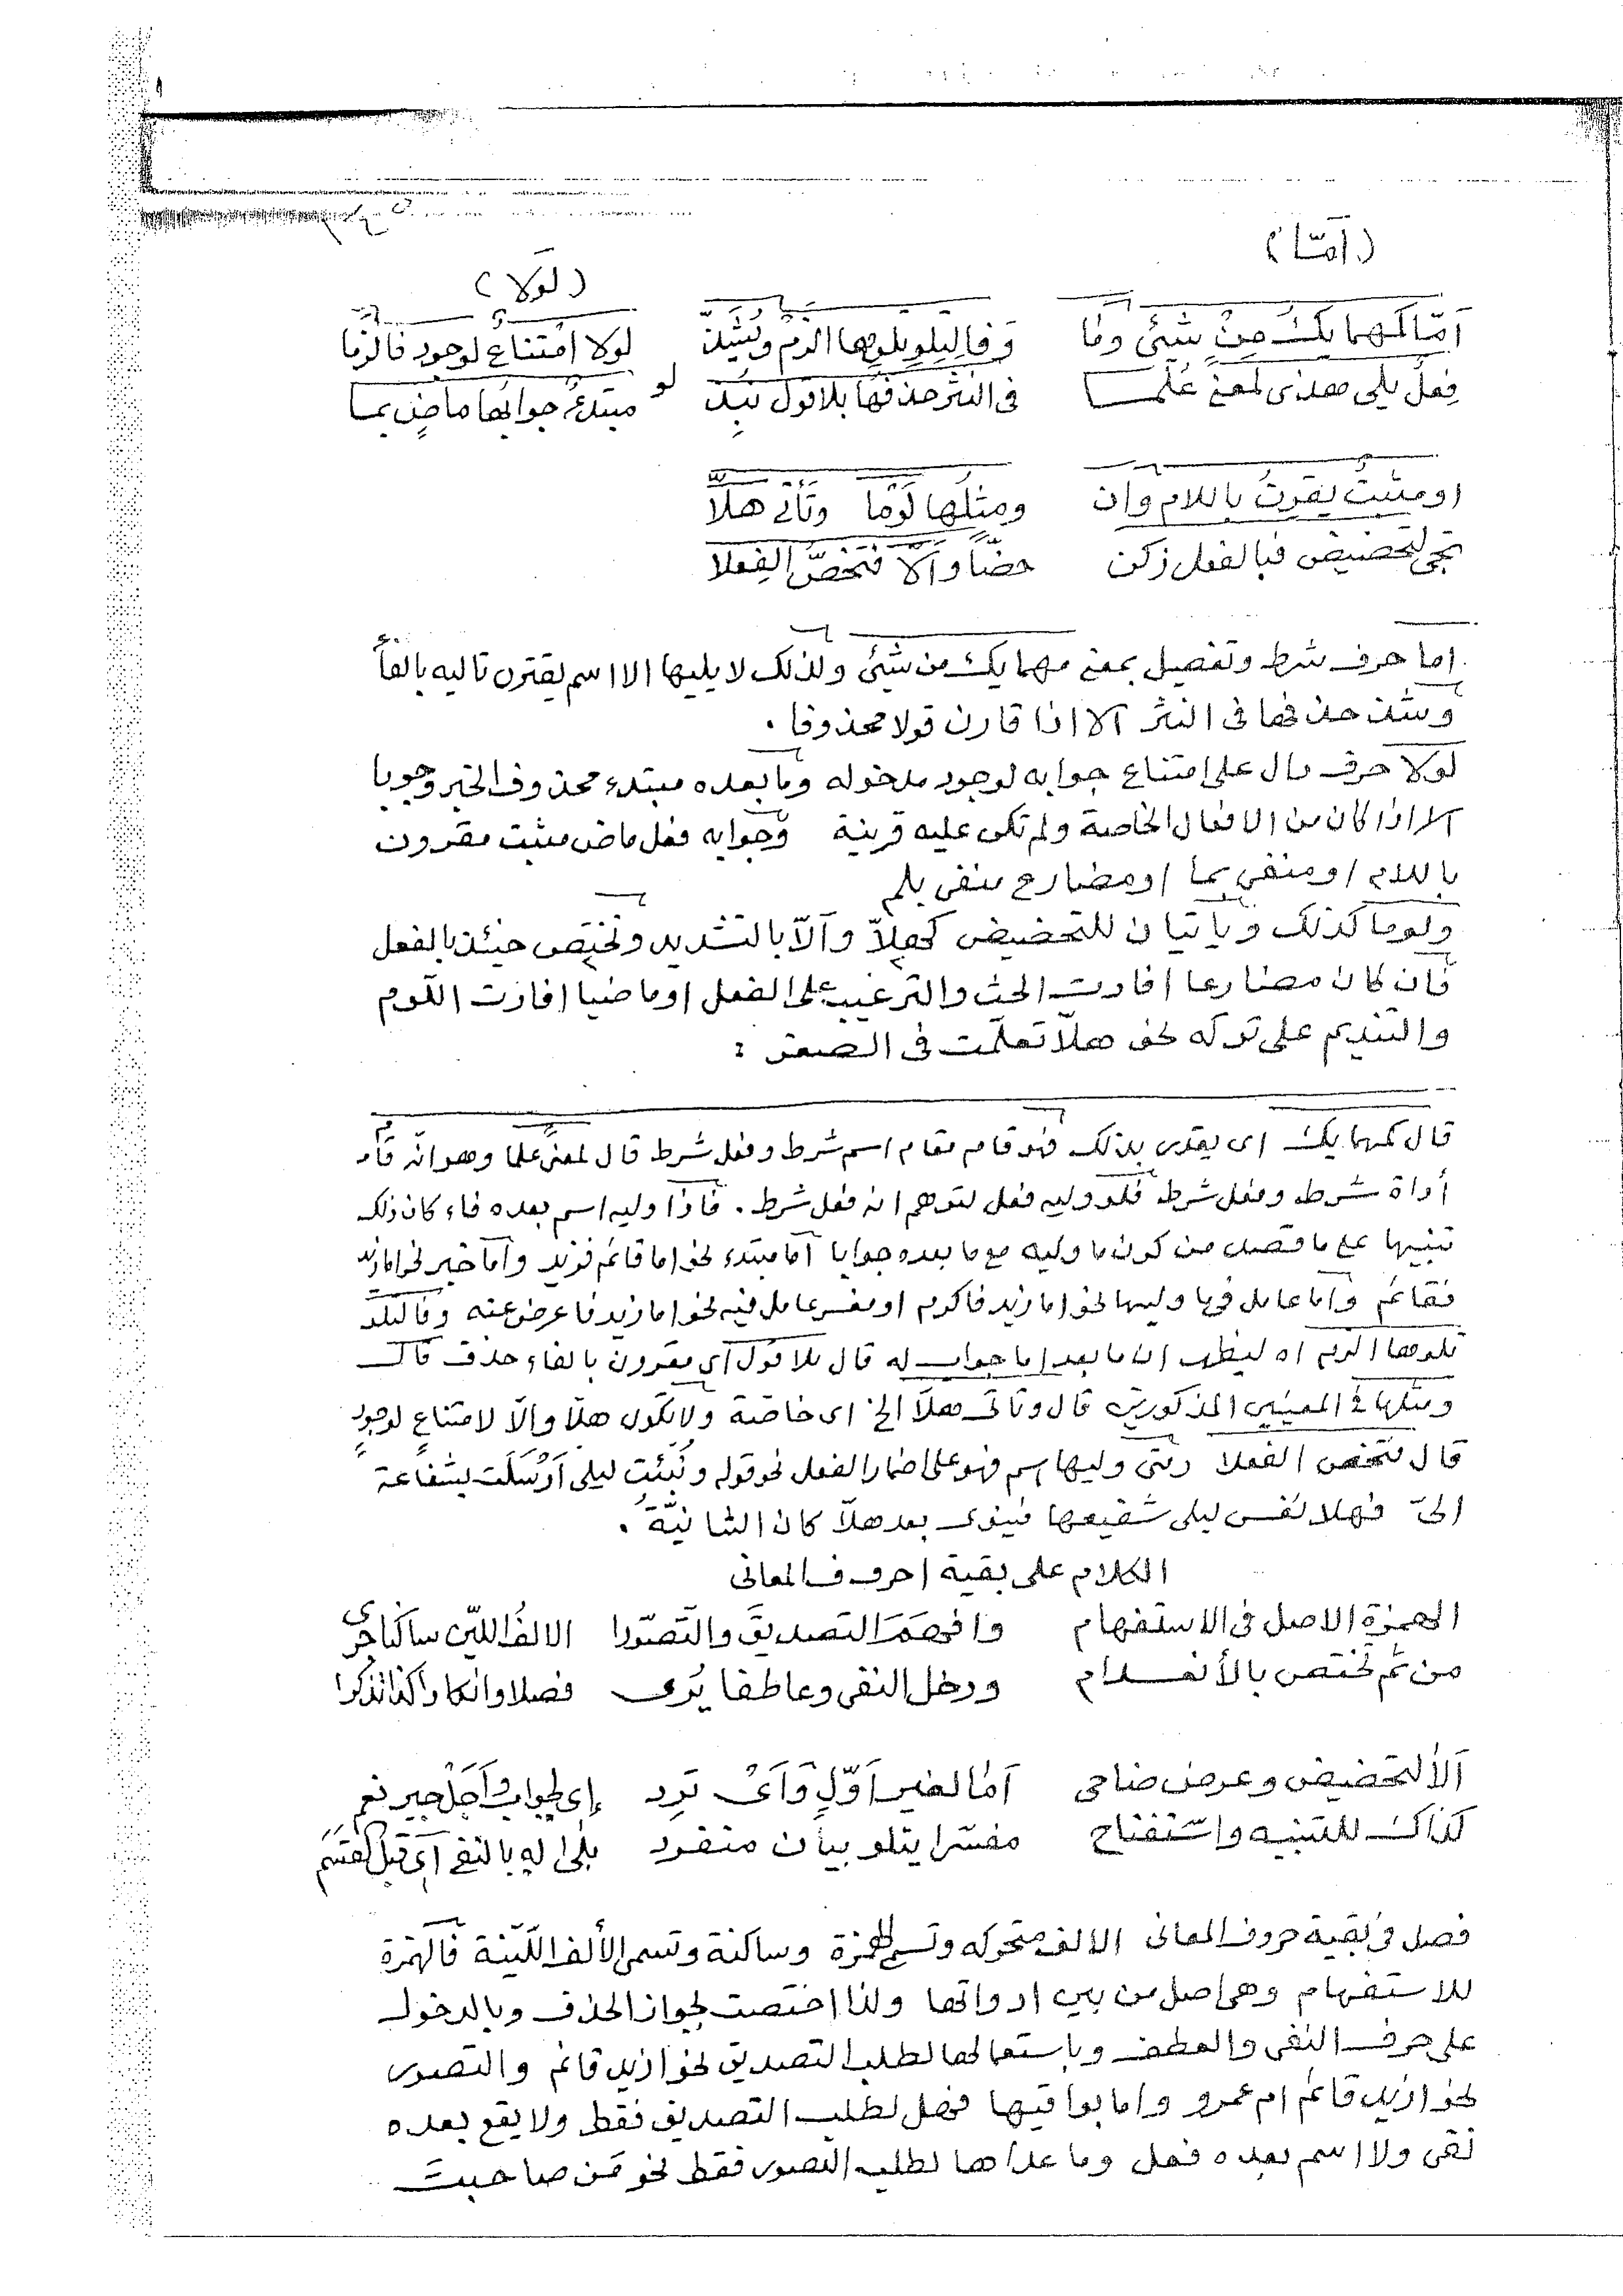 (أمّا)
(لَولا)
أمّا كمهما يكُ مِنْ شيئي وما وفا لِتِلوِ تِلوِها الزم ويُشَذّ لولا امتناع لوجود فالزما
فِعلٌ يلي هذى لمعنىً عُلما فى النثر حذفها بلا قول نُبِذ لو مبتدءً جوابها ماضٍ بما
او مثبتٌ يقرن باللام وإن ومثلُها لَوْما وتأتى هلّا
تجى لتحضيض فبالفعل زكن حضّاً وألّا فتخصّ الفِعلا
اما حرف شرط وتفصيل بمعنى مهما يك من شيئ ولذلك لا يليها الا اسم يقترن تاليه بالفاء
وشذ حذفها فى النثر الا اذا قارن قولا محذوفا .
لولا حرف دال على امتناع جوابه لوجود مدخوله وما بعده مبتدء محذوف الخبر وجوبا
الا اذا كان من الافعال الخاصة ولم تكن عليه قرينة وجوابه فعل ماض مثبت مقرون
باللام او منفى بما او مضارع منفى بلم
ولوما كذلك ويأتيان للتحضيض كهلّا وألّا بالتشديد وتختص حينئذ بالفعل
فان كان مضارعا افادت الحث والترغيب على الفعل او ماضيا افادت اللوم
والتنديم على تركه نحو هلّا تعلّمت فى الصغر :
قال كمهما يك اى يقدر بذلك فهو قام مقام اسم شرط وفعل شرط قال لمعنىً علما وهو انّه قام
أداة شرط وفعل شرط فلو وليه فعل لتوهم انه فعل شرط . فاذا وليه اسم بعده فاء كان ذلك
تنبيها على ما قصد من كون ما وليه مع ما بعده جوابا أما مبتدء نحو اما قائم فزيد وأما خبر نحو اما زيد
فقائم وأما عامل فيما وليها نحو اما زيد فاكرم او مفسر عامل فيه نحو اما زيد فاعرض عنه وفا لتلو
تلوها الزم اه ليظهر ان ما بعد اما جواب له قال بلا قول أى مقرون بالفاء حذف قال
ومثلها فى المعنيين المذكورين قال وتأتى هلّا الخ اى خاصة ولا تكون هلّا وألّا لامتناعٍ لوجودٍ
قال فتخص الفعلا ومتى وليها اسم فهو على اضمار الفعل نحو قوله ونُبئت ليلى أَرْسَلَت بشفاعة
الىّ فهلا نفس ليلى شفيعها فينوى بعد هلّا كان الشانيّة .
الكلام على بقية احرف المعانى
الهمزة الاصل فى الاستفهام وافهمَمَ التصديقَ والتَصوّرا الالفُ اللين ساكنا جرى
من ثم تختص بالأنعدام ودخل النفى وعاطفا يُرى فصلا وانكارا كذا تذكرا
ألا لتحضيض وعرض ضاحى أما لغير أوّلٍ وأىْ تَرِد إى لجواب وأَجَلْ جير نعم
كذاك للتنبيه واستفتاح مفسّرا يتلو بيان منفرد بلى له بالنفى أى قبل القسَم
فصل فى بقية حروف المعانى الالف متحركه وتسمى الهمزة وساكنة وتسمى الألف اللّينة فالهمزة
للاستفهام وهى اصل من بين ادواتها ولذا اختصت بجواز الحذف وبالدخول
على حرف النفى والعطف وباستعمالها لطلب التصديق نحو ازيد قائم والتصور
نحو ازيد قائم ام عمرو واما بواقيها فهل لطلب التصديق فقط ولا يقع بعده
نفى ولا اسم بعده فعل وما عداها لطلب التصور فقط نحو مَن صاحبتَ